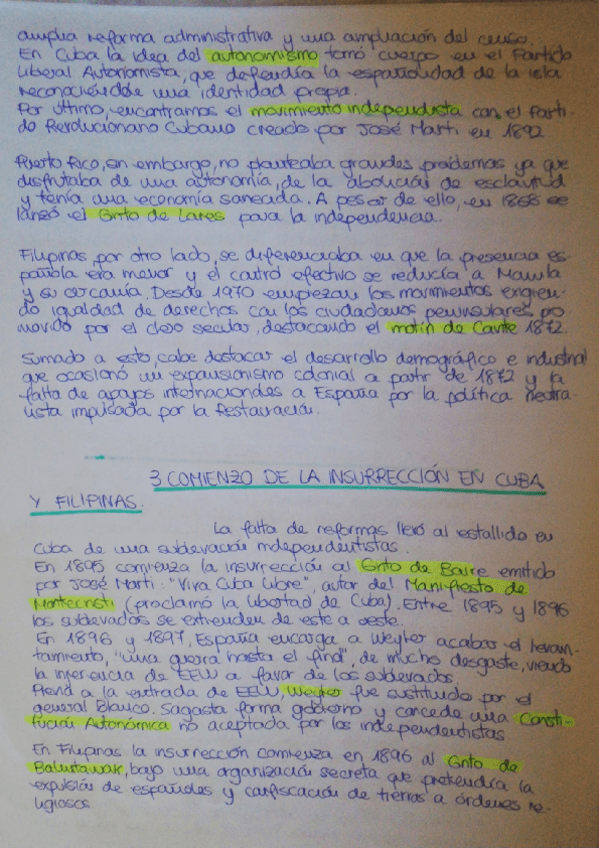 amplia reforma administrativa y una ampliación del censo.
En Cuba la idea del autonomismo tomó cuerpo en el Partido
Liberal Autonomista, que defendía la españolidad de la isla
reconociéndole una identidad propia.
Por último, encontramos el movimiento independista con el Parti-
do Revolucionario Cubano creado por José Martí en 1892
Puerto Rico, sin embargo, no planteaba grandes problemas ya que
disfrutaba de una autonomía, de la abolición de esclavitud
y tenía una economía saneada. A pesar de ello, en 1868 se
lanzó el Grito de Lares para la independencia.
Filipinas, por otro lado, se diferenciaba en que la presencia es-
pañola era menor y el control efectivo se reducía a Manila
y su cercanía. Desde 1970 empiezan los movimientos exigien-
do igualdad de derechos con los ciudadanos peninsulares pro
movido por el clero secular, destacando el motín de Cavite 1872.
Sumado a esto, cabe destacar el desarrollo demográfico e industrial
que ocasionó un expansionismo colonial a partir de 1872 y la
falta de apoyos internacionales a España por la política neutra-
lista impulsada por la Restauración.
3 COMIENZO DE LA INSURRECCIÓN EN CUBA
Y FILIPINAS.
La falta de reformas llevó al estallido en
Cuba de una sublevación independentistas.
En 1895 comienza la insurrección al Grito de Baire emitido
por José Martí: "Viva Cuba Libre", autor del Manifiesto de
Montecristi (proclamó la libertad de Cuba). Entre 1895 y 1896
los sublevados se extienden de este a oeste.
En 1896 y 1897, España encarga a Weyler acabar el levan-
tamiento, "una guerra hasta el final", de mucho desgaste, viendo
la injerencia de EEUU a favor de los sublevados.
a la entrada de EEUU, Weyler fue sustituido por el
general Blanco. Sagasta forma gobierno y concede una Consti-
tución Autonómica no aceptada por los independentistas
En Filipinas la insurrección comienza en 1896 al Grito de
Balintawak, bajo una organización secreta que pretendía la
expulsión de españoles y confiscación de tierras a órdenes re-
ligiosos